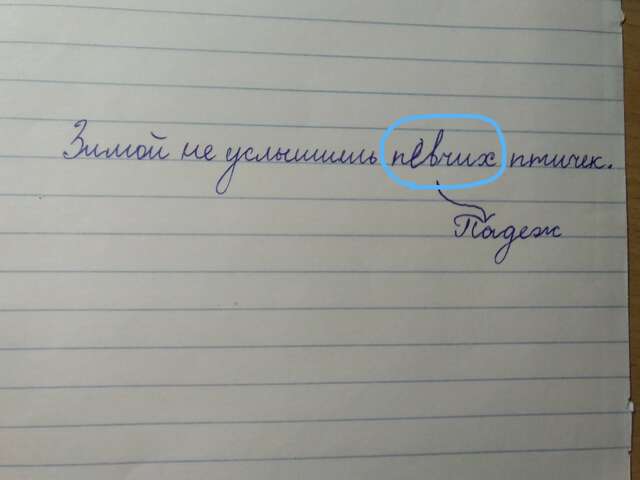 Зимой не услышишь певчих птичек.
Падеж